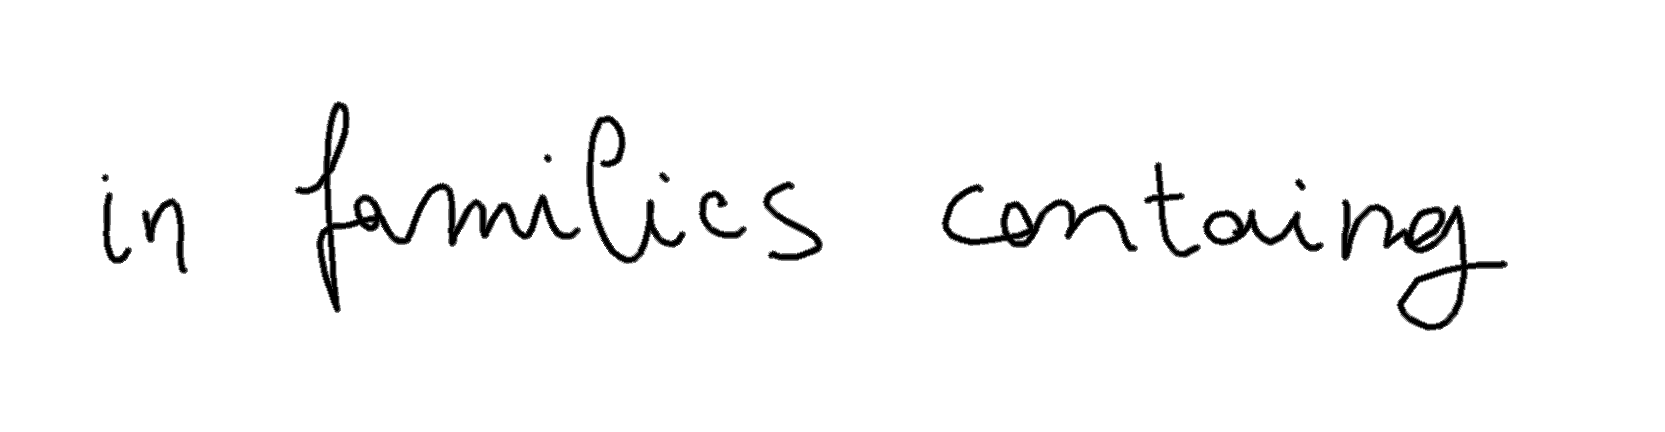 in families containg